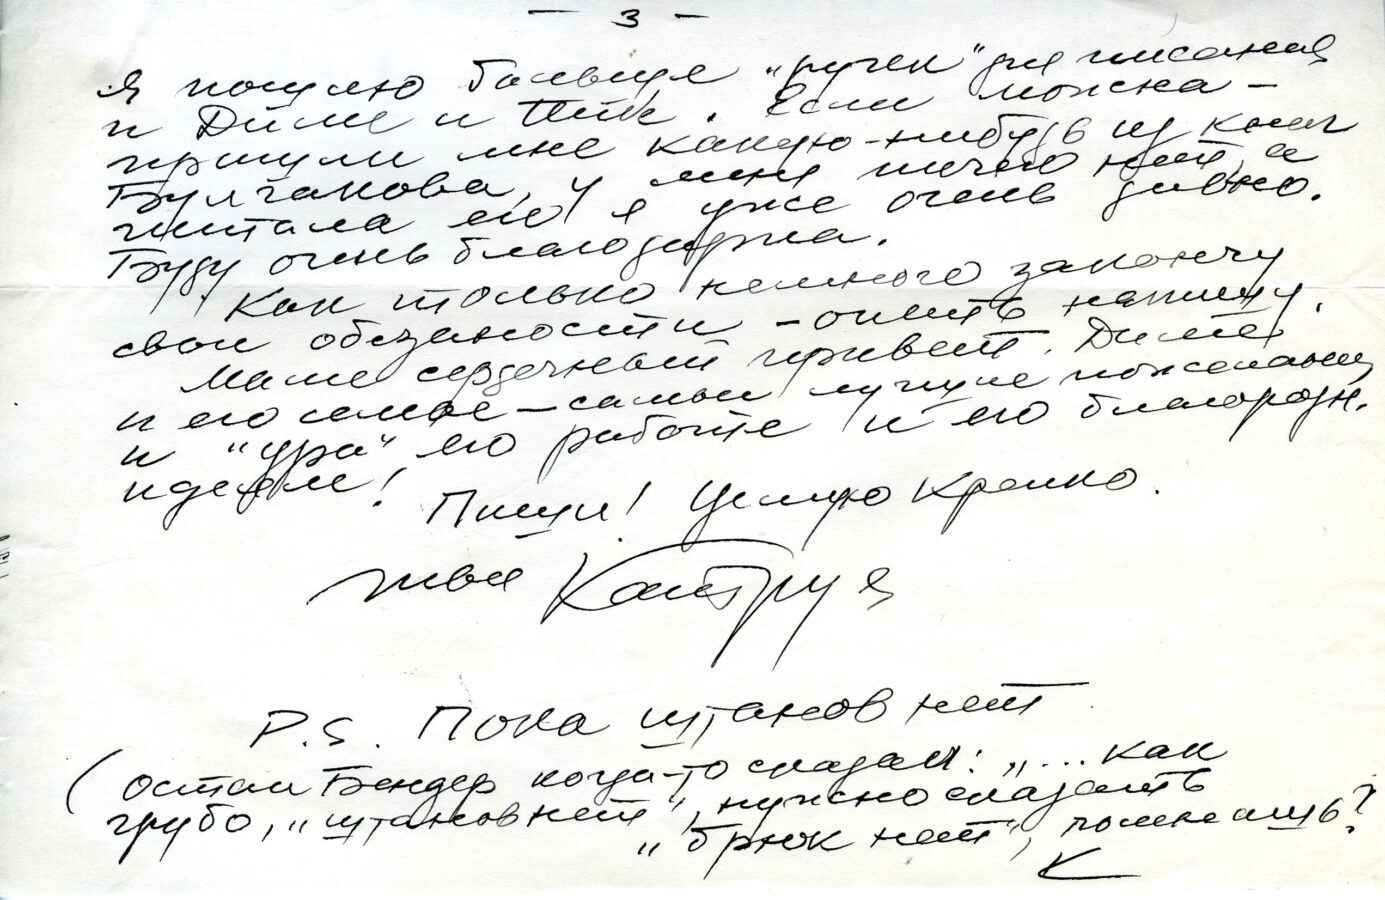 - 3 -
я пошлю больше „ручек" для писания
и Диме и Пик. Если можна -
пришли мне какую-нибудь из книг
Булгакова, у меня ничего нет, а
читала его я уже очень давно.
Буду очень благодарна.
Как только немного закончу
свои обязаности - опять напишу.
Маме сердечный привет. Диме
и его семье - самы лучшие пожелания
и „ура" его работе и его благородн.
идеям!
Пиши! Целую крепко.
твоя Катруя
P.S. Пока штанов нет
(Остап Бендер когда-то сказал: „... как
грубо, „штанов нет", нужно сказать
„брюк нет", помнишь?
К